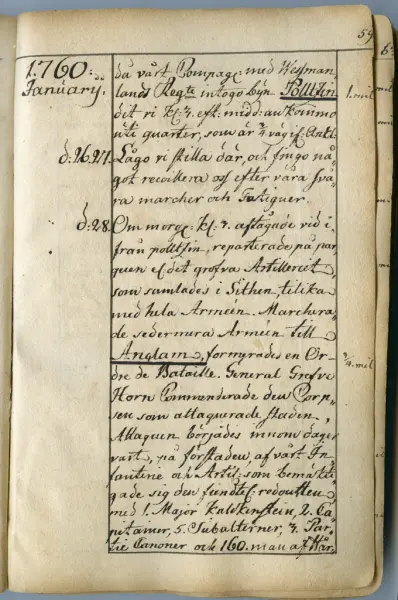 59
1760:
January.
då vårt Compagc: med Wessman,,
lands Regte intogo byn Polltzin
dit vi kl: 7. eft: midd: ankommo
uti quarter, som är ¼ väg if: Ankl.
1. mil
d: 26. 27.
Lågo vi stilla där, och fingo nå,,
got recollera oss efter våra svå,,
ra marcher och Fatiguer.
d: 28.
Om morg: kl: 7. aftågade vid i,,
från polltzin, reparterade på par,,
quen ef det grofva Artilleriet,
som samlades i Sithen, tilika
med hela Arméen. Marchera,,
de sedermera Arméen till
Anglam, formerades en Or,,
dre de Bataille. General Grefve
¾. mil
Horn Commenderade den Corp,,
sen som attaquerade staden,
Attaquen börjades innom dager
vart, på förstaden, af vårt In,,
fanterie och Artil: som bemäkti,,
gade sig den fiendtl: redoutten
med 1. Major Kaldkinstein, 2. Ca,,
pitainer, 5. Subalterner, 7. Par,,
tie Canoner och 160. man af Wär,,